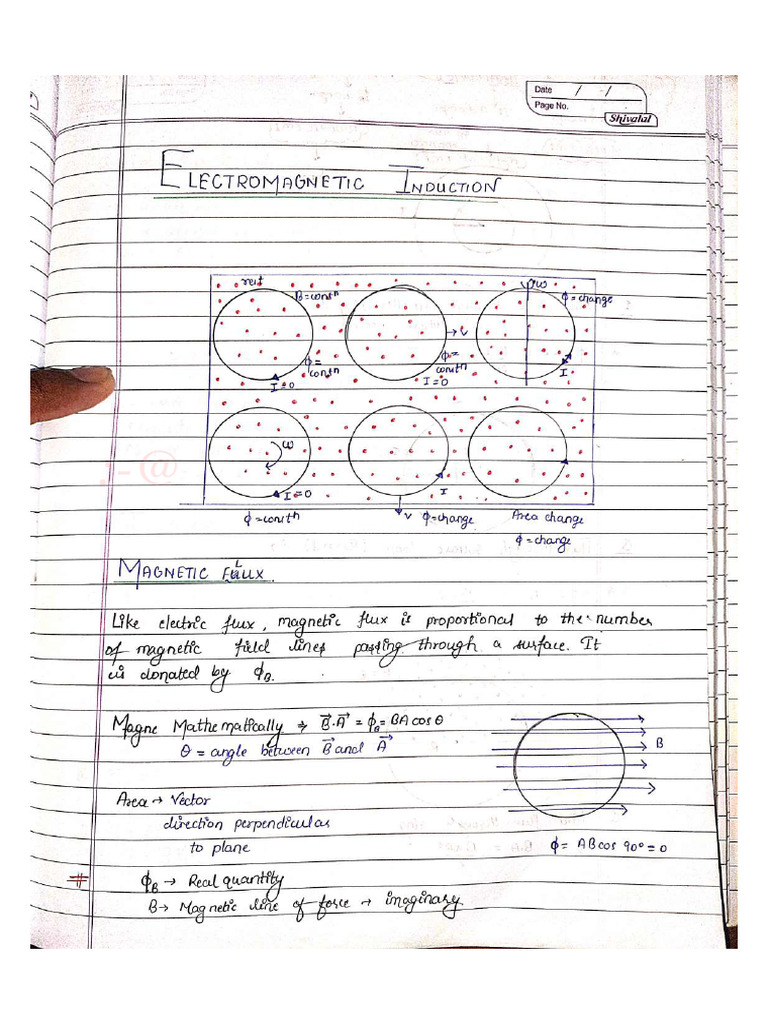 Date / /
Page No.
Shivalal
ELECTROMAGNETIC INDUCTION
rest
B=constn
ω
ϕ=change
→ v
ϕ=
constn
I=0
ϕ=
constn
I=0
I
ω
I=0
I
ϕ=constn
v
ϕ=change
Area change
ϕ=change
:-@
MAGNETIC FLUX.
Like electric flux, magnetic flux is proportional to the number
of magnetic field lines passing through a surface. It
is donated by ϕB.
Magne Mathematically ⇒ B⃗.A⃗ = ϕB = BA cosθ
θ = angle between B⃗ and A⃗
B
Area → Vector
direction perpendicular
to plane
ϕ = ABcos 90° = 0
# ϕB → Real quantity
B→ Magnetic line of force → imaginary